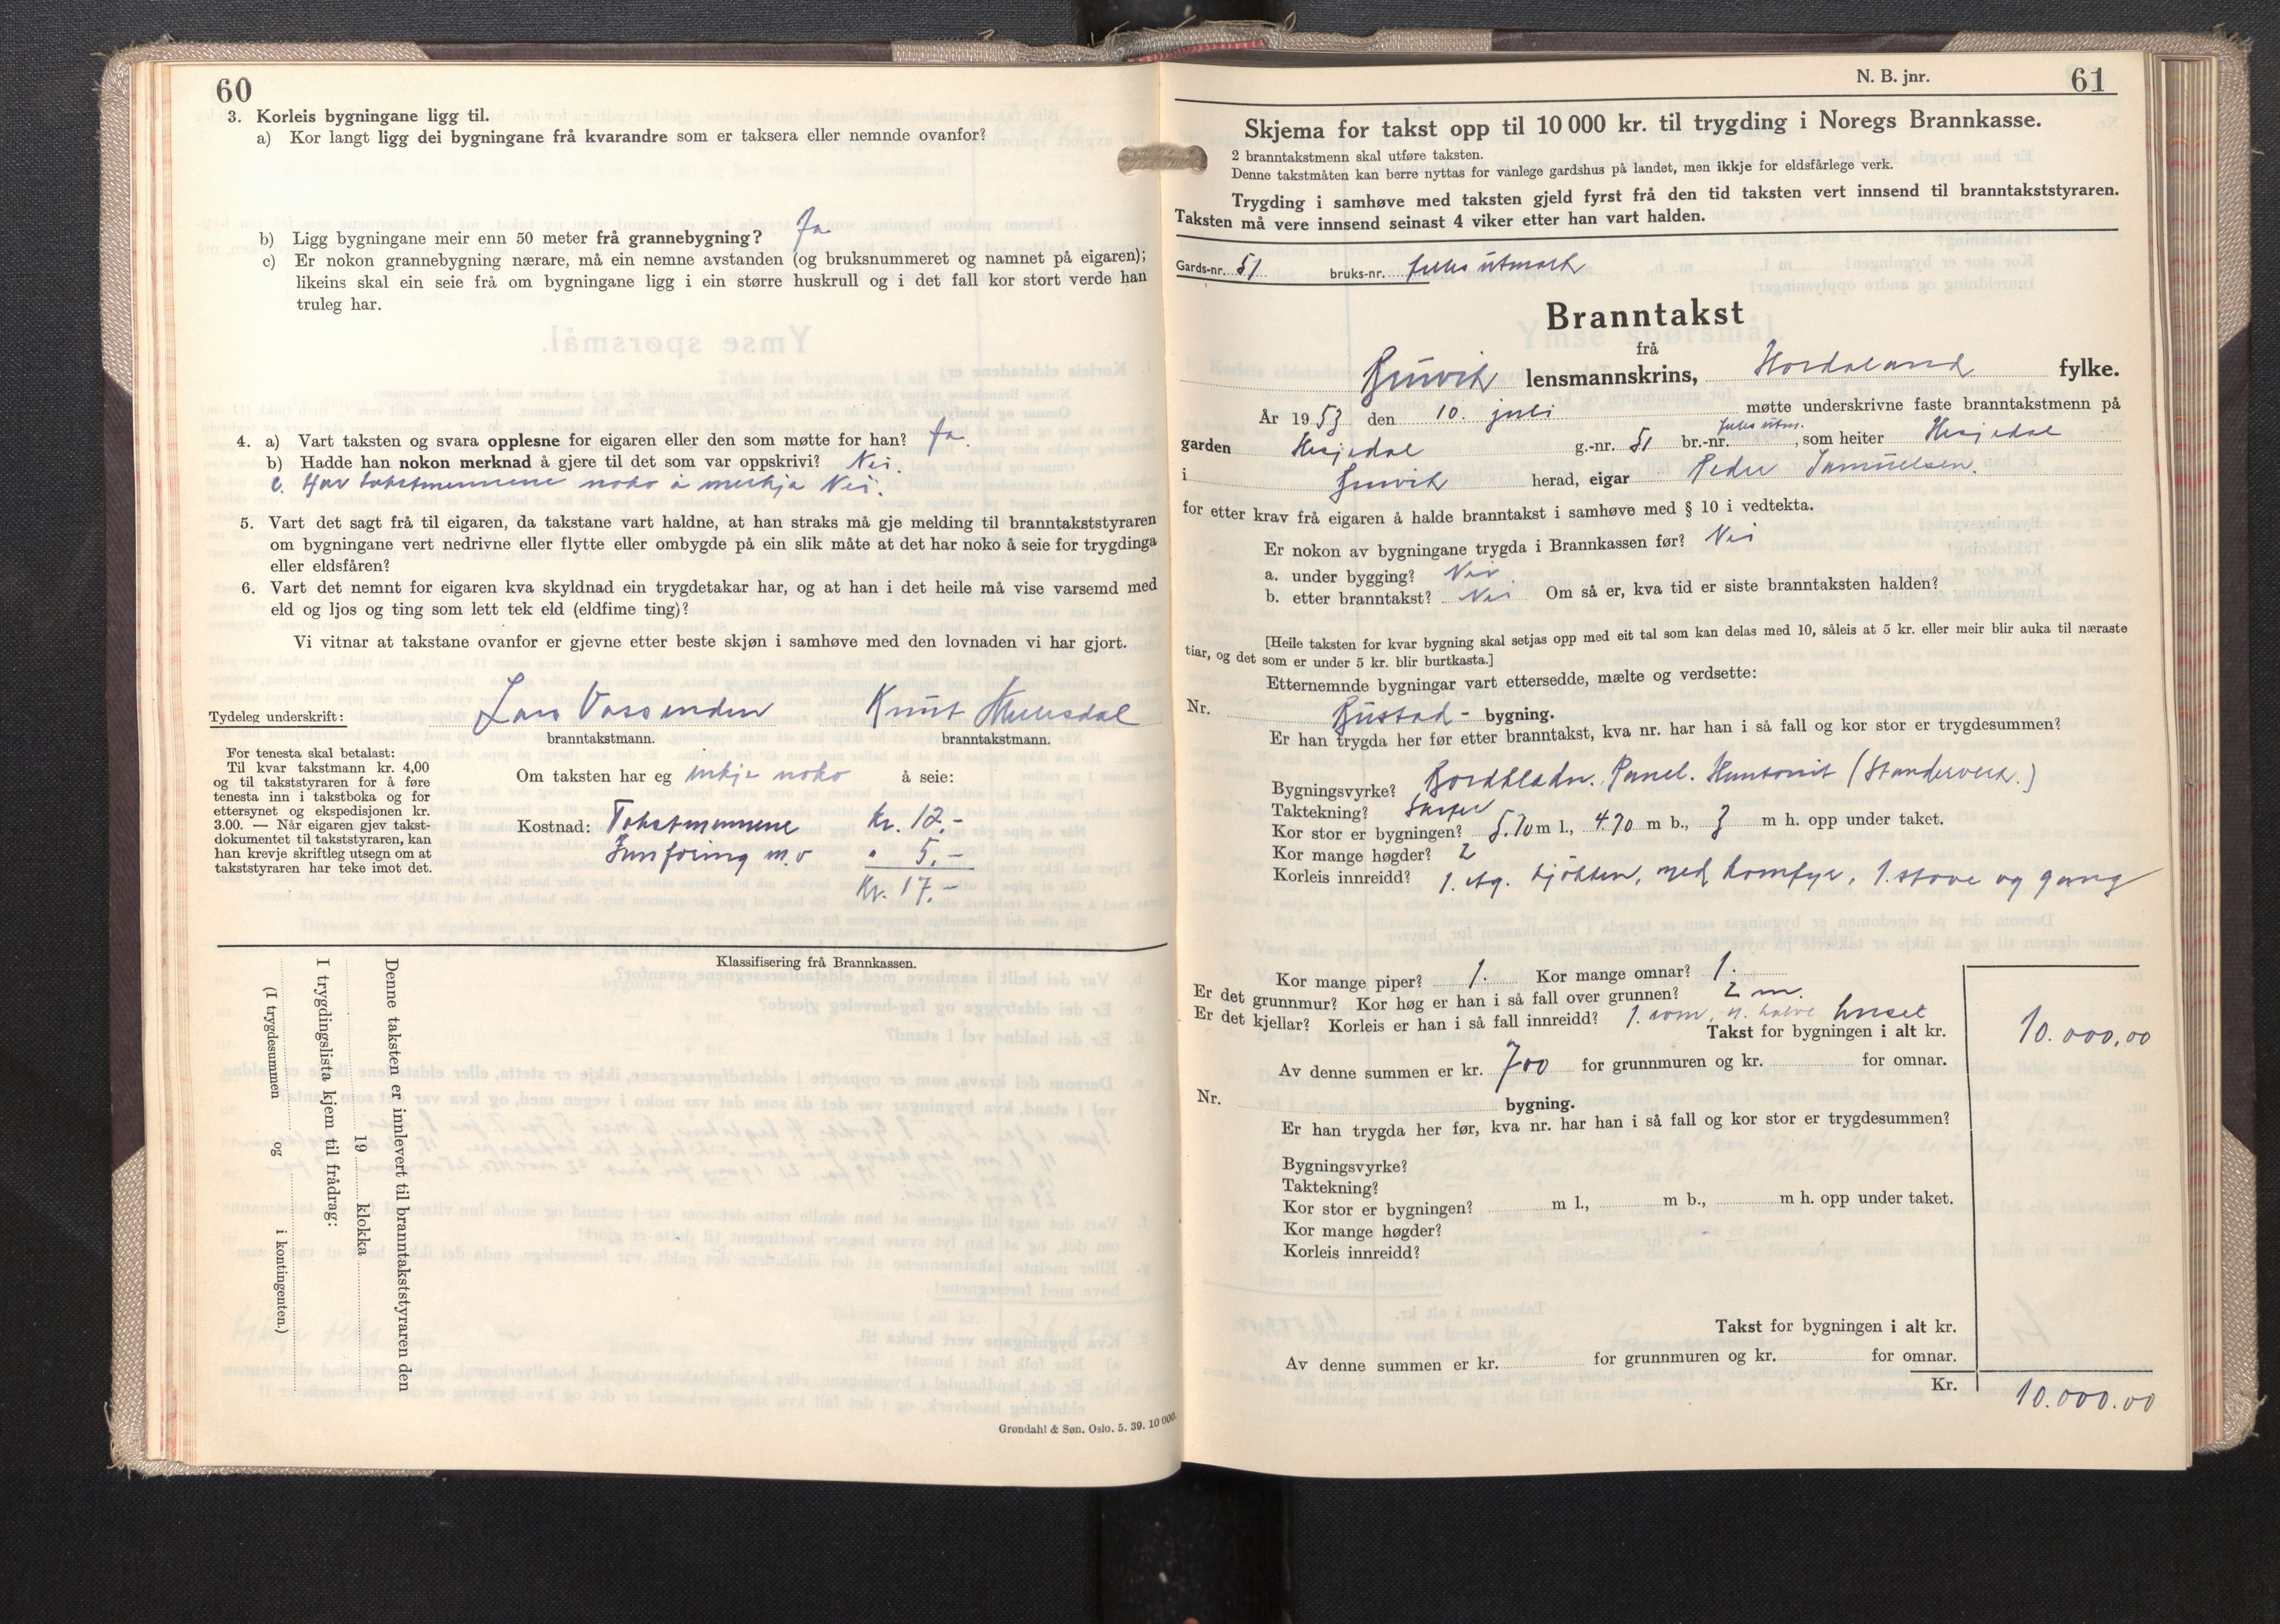 60
3. Korleis bygningane ligg til.
a) Kor langt ligg dei bygningane frå kvarandre som er taksera eller nemnde ovanfor?
b) Ligg bygningane meir enn 50 meter frå grannebygning? Ja
c) Er nokon grannebygning nærare, må ein nemne avstanden (og bruksnummeret og namnet på eigaren);
likeins skal ein seie frå om bygningane ligg i ein større huskrull og i det fall kor stort verde han
truleg har.
4. a) Vart taksten og svara opplesne for eigaren eller den som møtte for han? Ja.
b) Hadde han nokon merknad å gjere til det som var oppskrivi? Nei.
c. Har takstmennene noko å merkja Nei.
5. Vart det sagt frå til eigaren, da takstane vart haldne, at han straks må gje melding til branntakststyraren
om bygningane vert nedrivne eller flytte eller ombygde på ein slik måte at det har noko å seie for trygdinga
eller eldsfåren?
6. Vart det nemnt for eigaren kva skyldnad ein trygdetakar har, og at han i det heile må vise varsemd med
eld og ljos og ting som lett tek eld (eldfime ting)?
Vi vitnar at takstane ovanfor er gjevne etter beste skjøn i samhøve med den lovnaden vi har gjort.
Tydeleg underskrift: Lars Vassenden Knut
branntakstmann. branntakstmann.
For tenesta skal betalast:
Til kvar takstmann kr. 4,00
og til takststyraren for å føre
tenesta inn i takstboka og for
ettersynet og ekspedisjonen kr.
3.00. — Når eigaren gjev takst-
dokumentet til takststyraren, kan
han krevje skriftleg utsegn om at
takststyraren har teke imot det.
Om taksten har eg inkje noko å seie:
Kostnad: Takstmennene Kr. 12.-
Innføring m.v " 5.-
Kr. 17.-
Klassifisering frå Brannkassen.
Denne taksten er innlevert til branntakststyraren den
19 klokka
I trygdingslista kjem til frådrag:
(I trygdesummen og i kontingenten.)
Grøndahl & Søn. Oslo. 5. 39. 10 000.
N. B. jnr. 61
Skjema for takst opp til 10 000 kr. til trygding i Noregs Brannkasse.
2 branntakstmenn skal utføre taksten.
Denne takstmåten kan berre nyttas for vanlege gardshus på landet, men ikkje for eldsfårlege verk.
Trygding i samhøve med taksten gjeld fyrst frå den tid taksten vert innsend til branntakststyraren.
Taksten må vere innsend seinast 4 viker etter han vart halden.
Gards-nr. 51 bruks-nr. felles utmark
Branntakst
frå
Bruvik lensmannskrins, Hordaland fylke.
År 1953 den 10. juli møtte underskrivne faste branntakstmenn på
felles utm.
garden Hesjedal g.-nr. 51 br.-nr. , som heiter Hesjedal
i Bruvik herad, eigar Peder Samuelsen.
for etter krav frå eigaren å halde branntakst i samhøve med § 10 i vedtekta.
Er nokon av bygningane trygda i Brannkassen før? Nei
a. under bygging? Nei
b. etter branntakst? Nei Om så er, kva tid er siste branntaksten halden?
[Heile taksten for kvar bygning skal setjas opp med eit tal som kan delas med 10, såleis at 5 kr. eller meir blir auka til næraste
tiar, og det som er under 5 kr. blir burtkasta.]
Etternemnde bygningar vart ettersedde, mælte og verdsette:
Nr. Bustad- bygning.
Er han trygda her før etter branntakst, kva nr. har han i så fall og kor stor er trygdesummen?
Bygningsvyrke? Bordkledn. Panel. Huntonit (Standerverk.)
Taktekning? Skifer
Kor stor er bygningen? 5.70 m l., 4.70 m b., 3 m h. opp under taket.
Kor mange høgder? 2
Korleis innreidd? 1. etg. kjøkken, med komfyr, 1. stove og gang
Kor mange piper? 1. Kor mange omnar? 1.
Er det grunnmur? Kor høg er han i så fall over grunnen? 2 m.
Er det kjellar? Korleis er han i så fall innreidd? 1. rom, u. halve huset
Takst for bygningen i alt kr. 10.000,00
Av denne summen er kr. 700 for grunnmuren og kr. for omnar.
Nr. bygning.
Er han trygda her før, kva nr. har han i så fall og kor stor er trygdesummen?
Bygningsvyrke?
Taktekning?
Kor stor er bygningen? m l., m b., m h. opp under taket.
Kor mange høgder?
Korleis innreidd?
Takst for bygningen i alt kr.
Av denne summen er kr. for grunnmuren og kr. for omnar.
Kr. 10.000.00